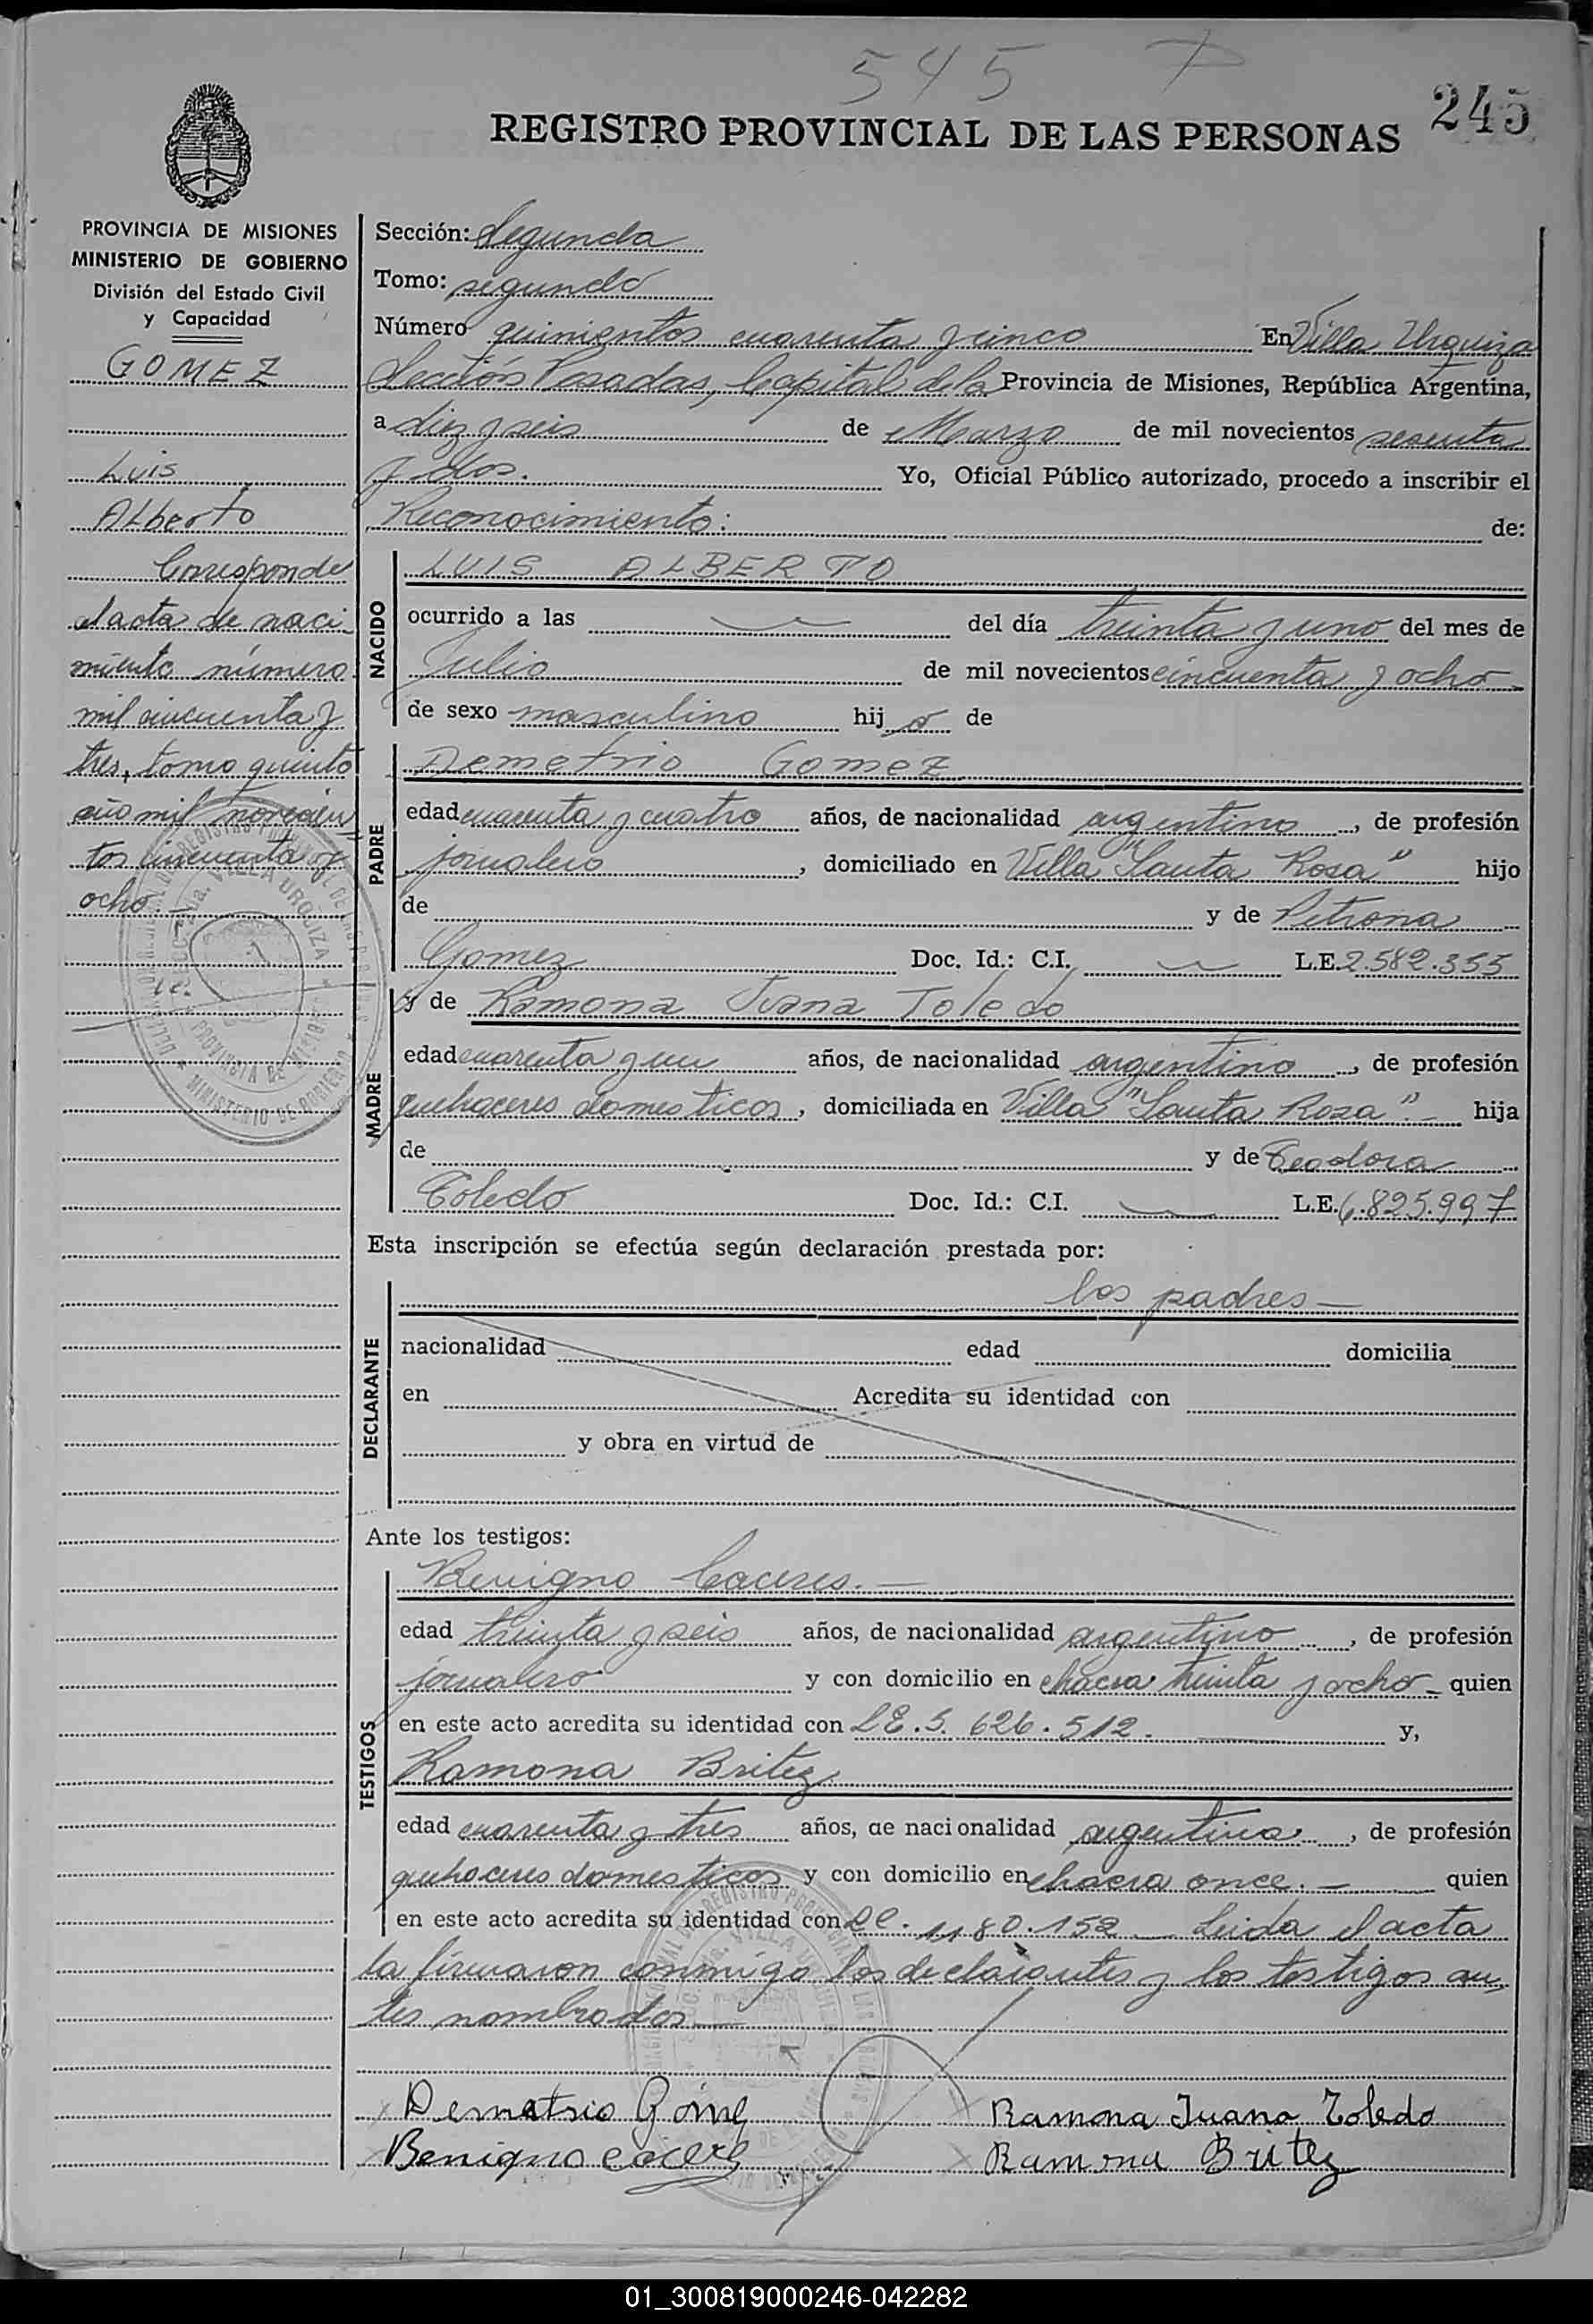 545
245
REGISTRO PROVINCIAL DE LAS PERSONAS
PROVINCIA DE MISIONES
MINISTERIO DE GOBIERNO
División del Estado Civil
y Capacidad
GOMEZ
Luis
Alberto
Corresponde
el acta de naci-
miento número
mil cincuenta y
tres, tomo quinto
año mil novecien
tos cincuenta y
ocho.-
Sección: Segunda
Tomo: segundo
Número quinientos cuarenta y cinco En Villa Urquiza
Sección Posadas, Capital de la Provincia de Misiones, República Argentina,
a diez y seis de Marzo de mil novecientos sesenta
y dos. Yo, Oficial Público autorizado, procedo a inscribir el
Reconocimiento: de:
NACIDO
LUIS ALBERTO
ocurrido a las del día treinta y uno del mes de
Julio de mil novecientos cincuenta y ocho-
de sexo masculino hij o de
PADRE
Demetrio Gomez
edad cuarenta y cuatro años, de nacionalidad argentino, de profesión
jornalero, domiciliado en Villa "Santa Rosa" hijo
de y de Petrona
Gomez Doc. Id.: C.I. L.E. 2.582.355
MADRE
y de Ramona Juana Toledo
edad cuarenta y un años, de nacionalidad argentino, de profesión
quehaceres domesticos, domiciliada en Villa "Santa Rosa".- hija
de y de Teodora
Toledo Doc. Id.: C.I. L.E. 6.825.997
Esta inscripción se efectúa según declaración prestada por:
DECLARANTE
los padres-
nacionalidad edad domicilia
en Acredita su identidad con
y obra en virtud de
Ante los testigos:
TESTIGOS
Benigno Caceres.-
edad treinta y seis años, de nacionalidad argentino, de profesión
jornalero y con domicilio en chacra treinta y ocho- quien
en este acto acredita su identidad con LE. 5. 626. 512. y,
Ramona Britez
edad cuarenta y tres años, de nacionalidad argentina, de profesión
quehaceres domesticos y con domicilio en chacra once.- quien
en este acto acredita su identidad con LC. 1180.152 Leida el acta
la firmaron conmigo los declarantes y los testigos an
tes nombrados
Demetrio Gómez Ramona Juana Toledo
Benigno caceres Ramona Britez
01_300819000246-042282